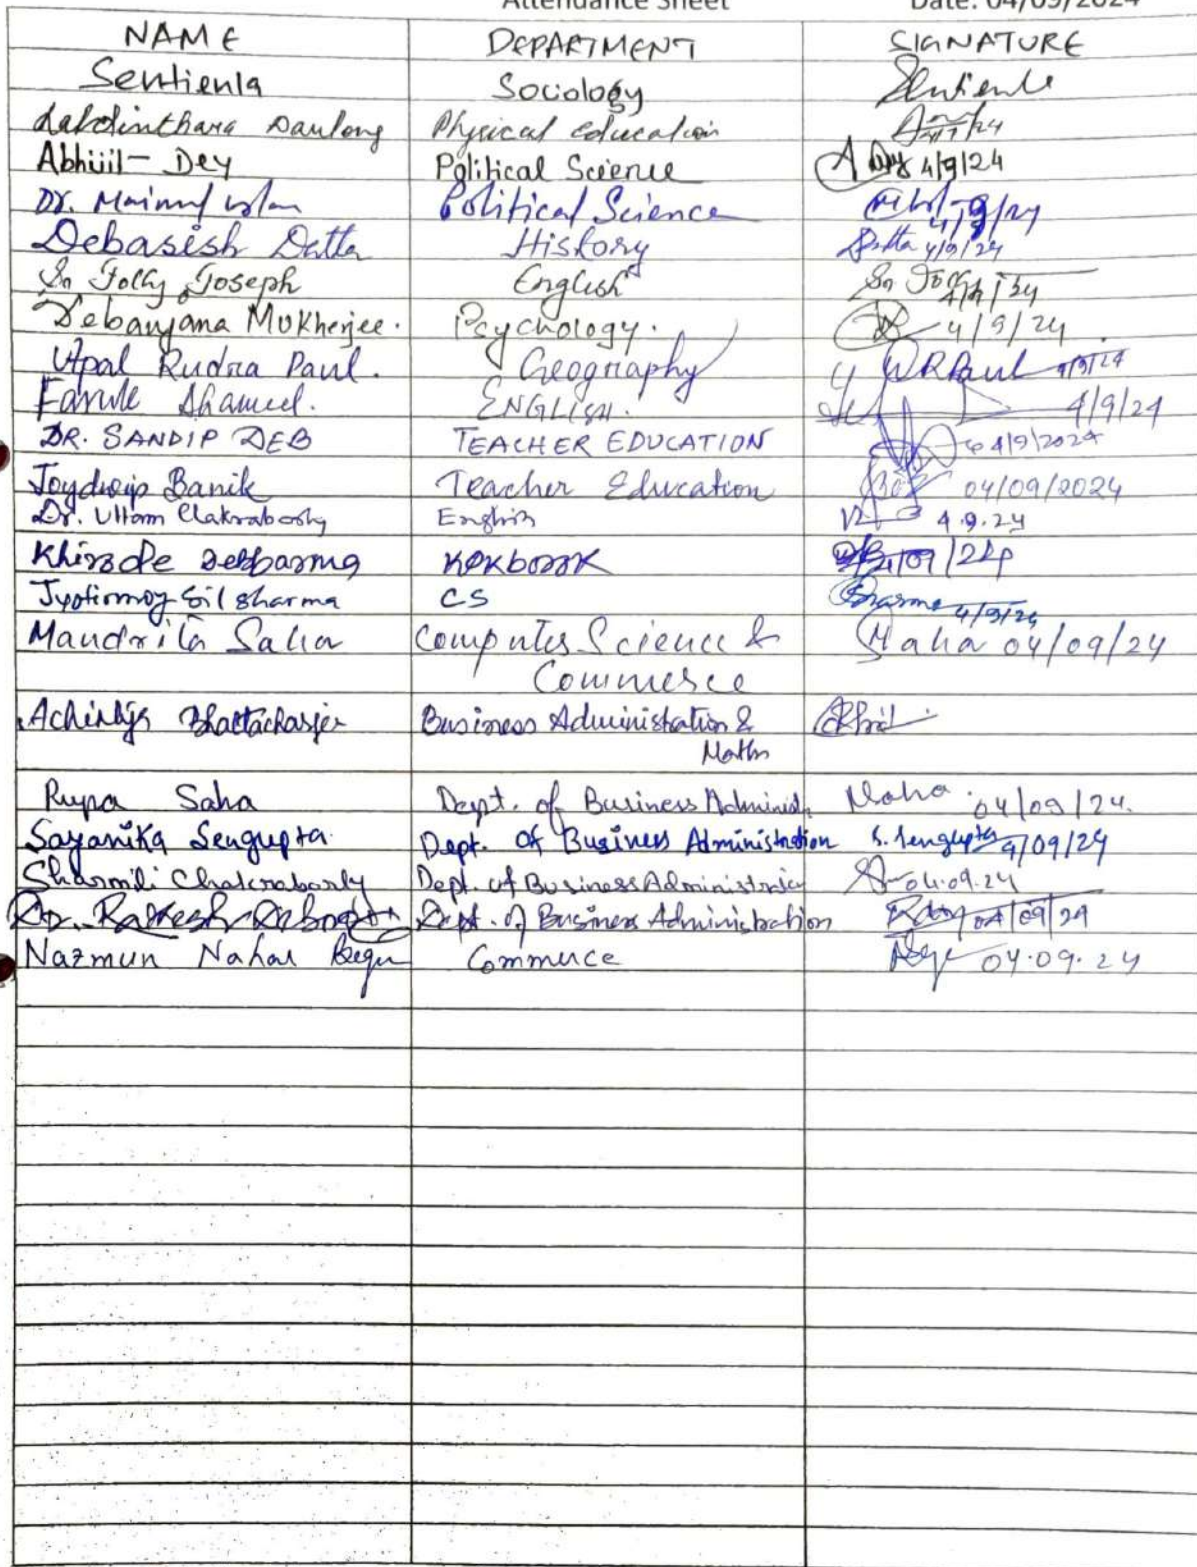 Attendance Sheet Date: 04/09/2024
NAME DEPARTMENT SIGNATURE
Sentienla Sociology Sentienla
Darlong Physical Education
Abhijit Dey Political Science A Dey 4/9/24
Dr. Mainul Islam Political Science 4/9/24
Debasish Datta History Datta 4/9/24
Sr Jolly Joseph English Sr Jolly 4/9/24
Debanjana Mukherjee. Psychology. 4/9/24
Utpal Rudra Paul. Geography URPaul 4/9/24
ENGLISH. 4/9/24
DR. SANDIP DEB TEACHER EDUCATION 4/9/2024
Joydwip Banik Teacher Education 04/09/2024
Dr. Uttam Chakraborty English 4.9.24
Debbarma Kokborok /09/24
Jyotirmoy Sil Sharma CS Sharma 4/9/24
Mandrita Saha Computer Science & Saha 04/09/24
Commerce
Bhattacharjee Business Administration &
Maths
Rupa Saha Dept. of Business Administ. 04/09/24.
Sayanika Sengupta. Dept. of Business Administration S. Sengupta 4/09/24
Sharmili Chakraborty Dept. of Business Administration 04.09.24
Dr. Rakesh Debnath Dept. of Business Administration 04/09/24
Nazmun Nahar Begum Commerce 04.09.24